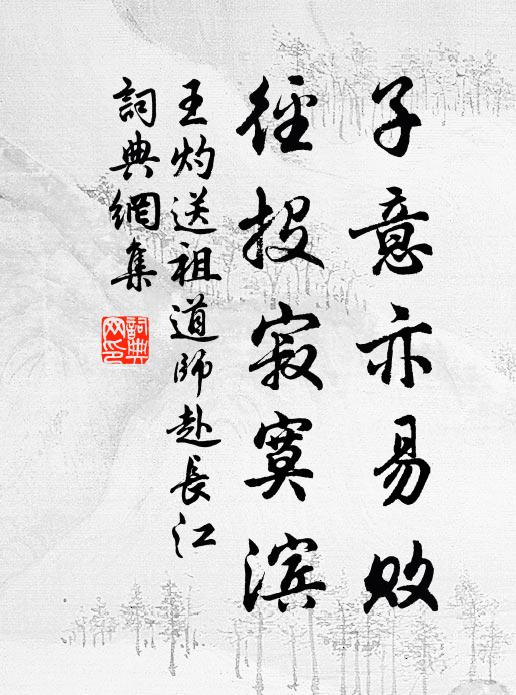 子意亦易败
径投寂寞滨
王灼送祖道師赴長江
詞典網集
詞典网印